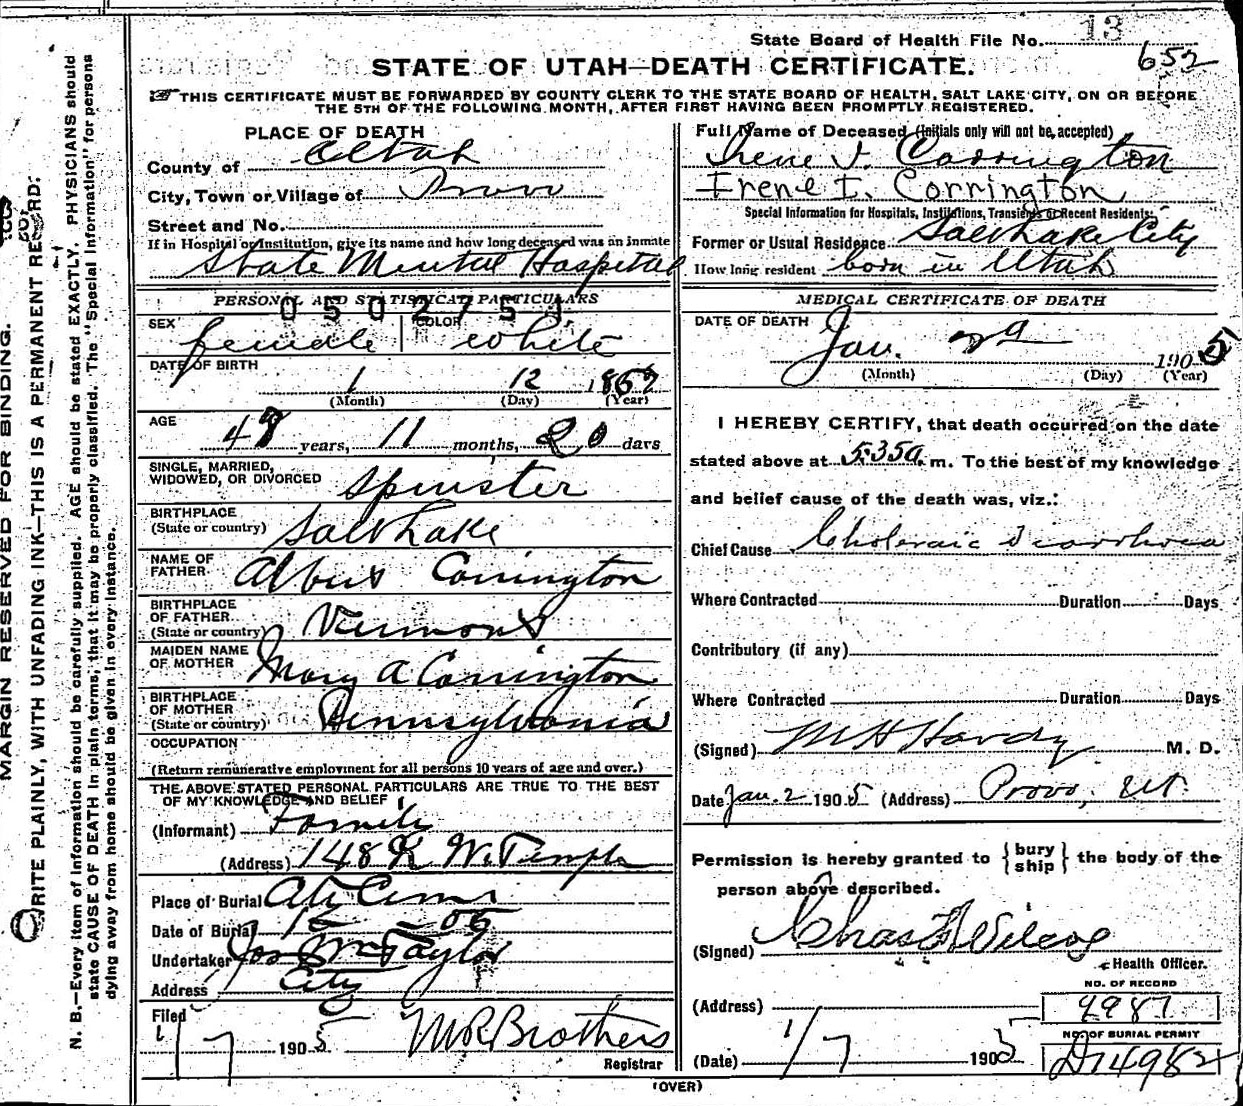 13
State Board of Health File No.
652
STATE OF UTAH—DEATH CERTIFICATE.
THIS CERTIFICATE MUST BE FORWARDED BY COUNTY CLERK TO THE STATE BOARD OF HEALTH, SALT LAKE CITY, ON OR BEFORE
THE 5TH OF THE FOLLOWING MONTH, AFTER FIRST HAVING BEEN PROMPTLY REGISTERED.
MARGIN RESERVED FOR BINDING.
WRITE PLAINLY, WITH UNFADING INK—THIS IS A PERMANENT RECORD.
N. B.—Every item of information should be carefully supplied. AGE should be stated EXACTLY. PHYSICIANS should
state CAUSE OF DEATH in plain terms, that it may be properly classified. The "Special Information" for persons
dying away from home should be given in every instance.
PLACE OF DEATH
County of Utah
City, Town or Village of Provo
Street and No.
If in Hospital or Institution, give its name and how long deceased was an inmate
State Mental Hospital
PERSONAL AND STATISTICAL PARTICULARS
0502751
SEX female COLOR white
DATE OF BIRTH
1 12 1857
(Month) (Day) (Year)
AGE
48 years, 11 months, 20 days
SINGLE, MARRIED,
WIDOWED, OR DIVORCED spinster
BIRTHPLACE
(State or country) Salt Lake
NAME OF
FATHER Albert Corrington
BIRTHPLACE
OF FATHER
(State or country) Vermont
MAIDEN NAME
OF MOTHER Mary A Corrington
BIRTHPLACE
OF MOTHER
(State or country) Pennsylvania
OCCUPATION
(Return remunerative employment for all persons 10 years of age and over.)
THE ABOVE STATED PERSONAL PARTICULARS ARE TRUE TO THE BEST
OF MY KNOWLEDGE AND BELIEF
(Informant) Family
(Address) 148 W. Temple
Place of Burial
Date of Burial 05
Undertaker Jos Wm Taylor
Address City
Filed
1/7 1905 M R Brothers
Registrar
Full Name of Deceased (Initials only will not be accepted)
Irene I. Corrington
Irene I. Corrington
Special Information for Hospitals, Institutions, Transients or Recent Residents:
Former or Usual Residence Salt Lake City
How long resident born in Utah
MEDICAL CERTIFICATE OF DEATH
DATE OF DEATH
Jan. 2d 1905
(Month) (Day) (Year)
I HEREBY CERTIFY, that death occurred on the date
stated above at 5:35 a. m. To the best of my knowledge
and belief cause of the death was, viz.:
Chief Cause Choleraic Diarrhoea
Where Contracted Duration Days
Contributory (if any)
Where Contracted Duration Days
(Signed) M H Hardy M. D.
Date Jan. 2 1905 (Address) Provo, Ut.
Permission is hereby granted to { bury ship } the body of the
person above described.
(Signed) Chas F Wilcox
Health Officer.
NO. OF RECORD
(Address) 9987
NO. OF BURIAL PERMIT
(Date) 1/7 1905 D14982
(OVER)